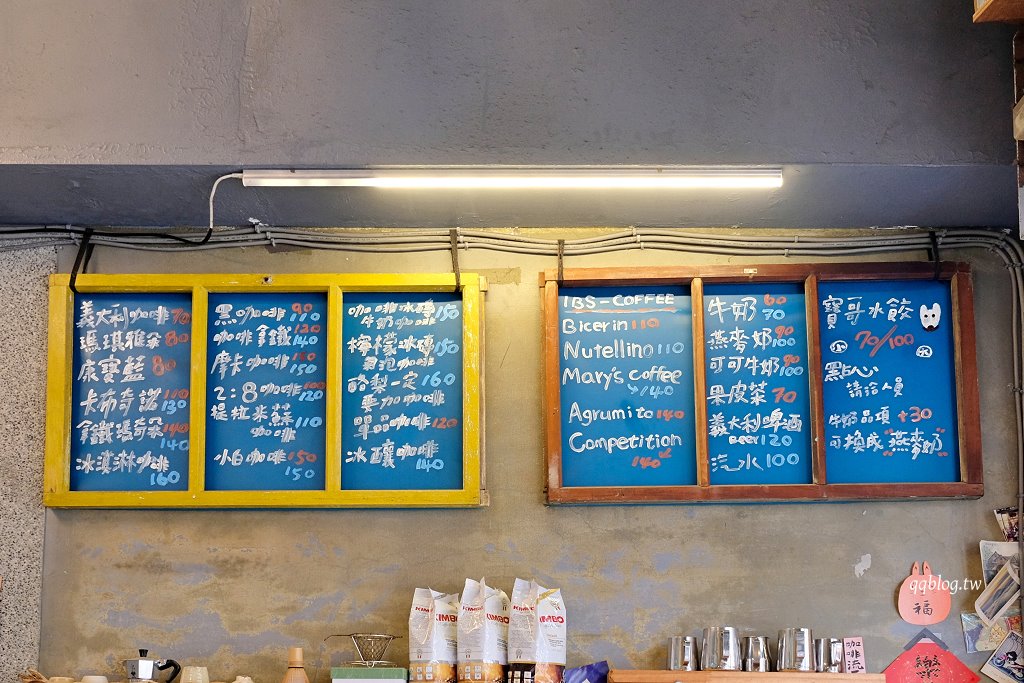 義大利咖啡 70
瑪琪雅朵 80
康寶藍 80
卡布奇諾 110
130
拿鐵瑪奇朵 140
140
冰淇淋咖啡
160
黑咖啡 90
110
咖啡拿鐵 120
140
摩卡咖啡
150
2:8咖啡 100
120
提拉米蘇
咖啡
小白咖啡 150
150
咖啡冰磚
牛奶咖啡 150
檸檬冰磚
氣泡咖啡 150
酪梨一定 160
要加咖啡
單品咖啡 120
冰釀咖啡
140
IBS-COFFEE
Bicerin 110
Nutellino 110
Mary's coffee
140
Agrumito 140
Competition
140
牛奶 60
70
燕麥奶 90
100
可可牛奶 90
100
果皮茶 70
義大利啤酒
Beer 120
汽水 100
寶哥水餃
小 70/100 大
點心
請洽人員
牛奶品項 +30
可換成"燕麥奶"
KIMBO
KIMBO
KIMBO
咖啡流
福
qqblog.tw